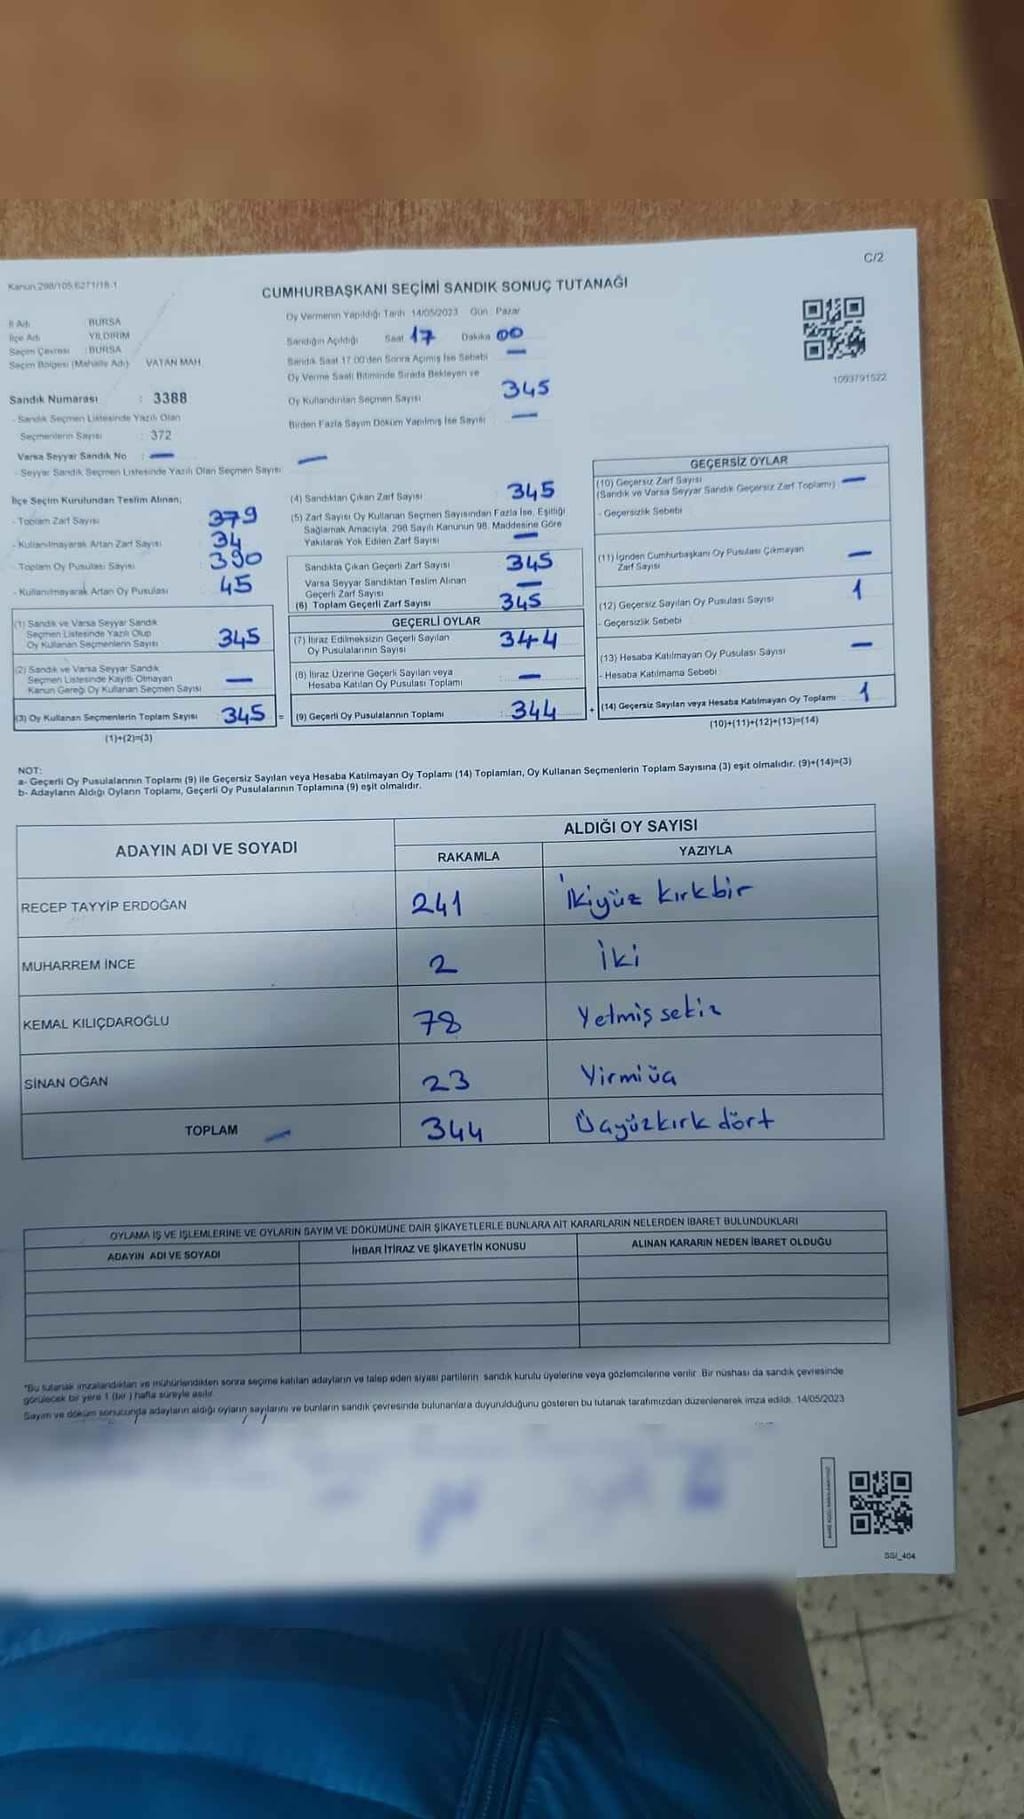 Kanun:298/105,6271/18.1
C/2
CUMHURBAŞKANI SEÇİMİ SANDIK SONUÇ TUTANAĞI
İl Adı : BURSA
İlçe Adı : YILDIRIM
Seçim Çevresi : BURSA
Seçim Bölgesi (Mahalle Adı) VATAN MAH
Sandık Numarası : 3388
- Sandık Seçmen Listesinde Yazılı Olan
Seçmenlerin Sayısı : 372
Varsa Seyyar Sandık No : —
- Seyyar Sandık Seçmen Listesinde Yazılı Olan Seçmen Sayısı —
Oy Vermenin Yapıldığı Tarih 14/05/2023 Gün : Pazar
Sandığın Açıldığı Saat 17 Dakika 00
Sandık Saat 17.00'den Sonra Açımış İse Sebebi —
Oy Verme Saati Bitiminde Sırada Bekleyen ve
Oy Kullandırılan Seçmen Sayısı 345
Birden Fazla Sayım Döküm Yapılmış İse Sayısı —
1093791522
İlçe Seçim Kurulundan Teslim Alınan;
- Toplam Zarf Sayısı : 379
- Kullanılmayarak Artan Zarf Sayısı : 34
- Toplam Oy Pusulası Sayısı : 390
- Kullanılmayarak Artan Oy Pusulası : 45
(1) Sandık ve Varsa Seyyar Sandık
Seçmen Listesinde Yazılı Olup
Oy Kullanan Seçmenlerin Sayısı 345
(2) Sandık ve Varsa Seyyar Sandık
Seçmen Listesinde Kayıtlı Olmayan
Kanun Gereği Oy Kullanan Seçmen Sayısı —
(3) Oy Kullanan Seçmenlerin Toplam Sayısı 345 =
(1)+(2)=(3)
(4) Sandıktan Çıkan Zarf Sayısı 345
(5) Zarf Sayısı Oy Kullanan Seçmen Sayısından Fazla İse, Eşitliği
Sağlamak Amacıyla, 298 Sayılı Kanunun 98. Maddesine Göre
Yakılarak Yok Edilen Zarf Sayısı —
Sandıkta Çıkan Geçerli Zarf Sayısı 345
Varsa Seyyar Sandıktan Teslim Alınan
Geçerli Zarf Sayısı —
(6) Toplam Geçerli Zarf Sayısı 345
GEÇERLİ OYLAR
(7) İtiraz Edilmeksizin Geçerli Sayılan
Oy Pusulalarının Sayısı : 344
(8) İtiraz Üzerine Geçerli Sayılan veya
Hesaba Katılan Oy Pusulası Toplamı : —
(9) Geçerli Oy Pusulalarının Toplamı : 344 +
GEÇERSİZ OYLAR
(10) Geçersiz Zarf Sayısı
(Sandık ve Varsa Seyyar Sandık Geçersiz Zarf Toplamı) : —
- Geçersizlik Sebebi
(11) İçinden Cumhurbaşkanı Oy Pusulası Çıkmayan
Zarf Sayısı —
(12) Geçersiz Sayılan Oy Pusulası Sayısı 1
- Geçersizlik Sebebi
(13) Hesaba Katılmayan Oy Pusulası Sayısı —
- Hesaba Katılmama Sebebi :
(14) Geçersiz Sayılan veya Hesaba Katılmayan Oy Toplamı 1
(10)+(11)+(12)+(13)=(14)
NOT:
a- Geçerli Oy Pusulalarının Toplamı (9) ile Geçersiz Sayılan veya Hesaba Katılmayan Oy Toplamı (14) Toplamları, Oy Kullanan Seçmenlerin Toplam Sayısına (3) eşit olmalıdır. (9)+(14)=(3)
b- Adayların Aldığı Oyların Toplamı, Geçerli Oy Pusulalarının Toplamına (9) eşit olmalıdır.
ADAYIN ADI VE SOYADI ALDIĞI OY SAYISI
RAKAMLA YAZIYLA
RECEP TAYYİP ERDOĞAN 241 İkiyüz kırkbir
MUHARREM İNCE 2 İki
KEMAL KILIÇDAROĞLU 78 Yetmiş sekiz
SİNAN OĞAN 23 Yirmiüç
TOPLAM — 344 Üçyüzkırk dört
OYLAMA İŞ VE İŞLEMLERİNE VE OYLARIN SAYIM VE DÖKÜMÜNE DAİR ŞİKAYETLERLE BUNLARA AİT KARARLARIN NELERDEN İBARET BULUNDUKLARI
ADAYIN ADI VE SOYADI İHBAR İTİRAZ VE ŞİKAYETİN KONUSU ALINAN KARARIN NEDEN İBARET OLDUĞU
*Bu tutanak imzalandıktan ve mühürlendikten sonra seçime katılan adayların ve talep eden siyasi partilerin sandık kurulu üyelerine veya gözlemcilerine verilir. Bir nüshası da sandık çevresinde
görülecek bir yere 1 (bir) hafta süreyle asılır.
Sayım ve döküm sonucunda adayların aldığı oyların sayılarını ve bunların sandık çevresinde bulunanlara duyurulduğunu gösteren bu tutanak tarafımızdan düzenlenerek imza edildi. 14/05/2023
SSI_404